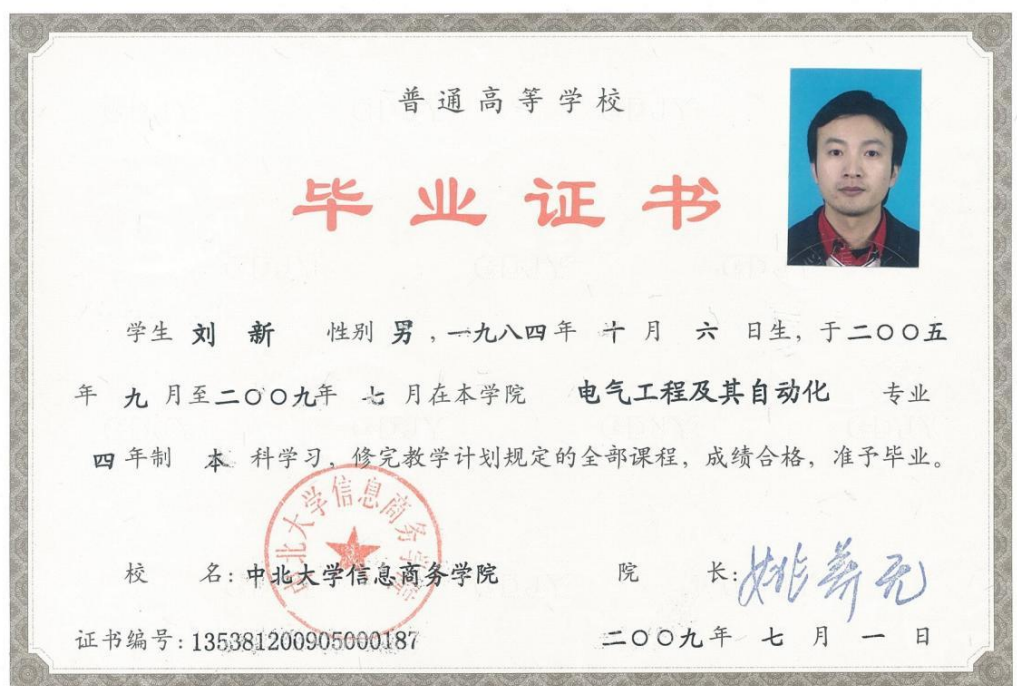 普通高等学校
毕业证书
学生 刘新 性别 男，一九八四年 十月 六 日生，于二〇〇五
年 九 月至二〇〇九年 七 月在本学院 电气工程及其自动化 专业
四年制 本 科学习，修完教学计划规定的全部课程，成绩合格，准予毕业。
中北大学信息商务学院
校 名：中北大学信息商务学院 院 长：
证书编号：135381200905000187 二〇〇九年 七 月 一 日